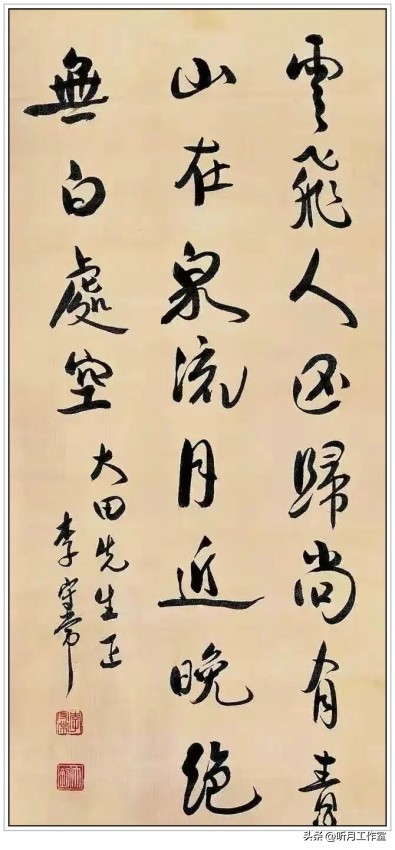 雲飛人歸尚有青
山在泉流月近晚絕
無白處空
大田先生正
李守常
头条 @听月工作室